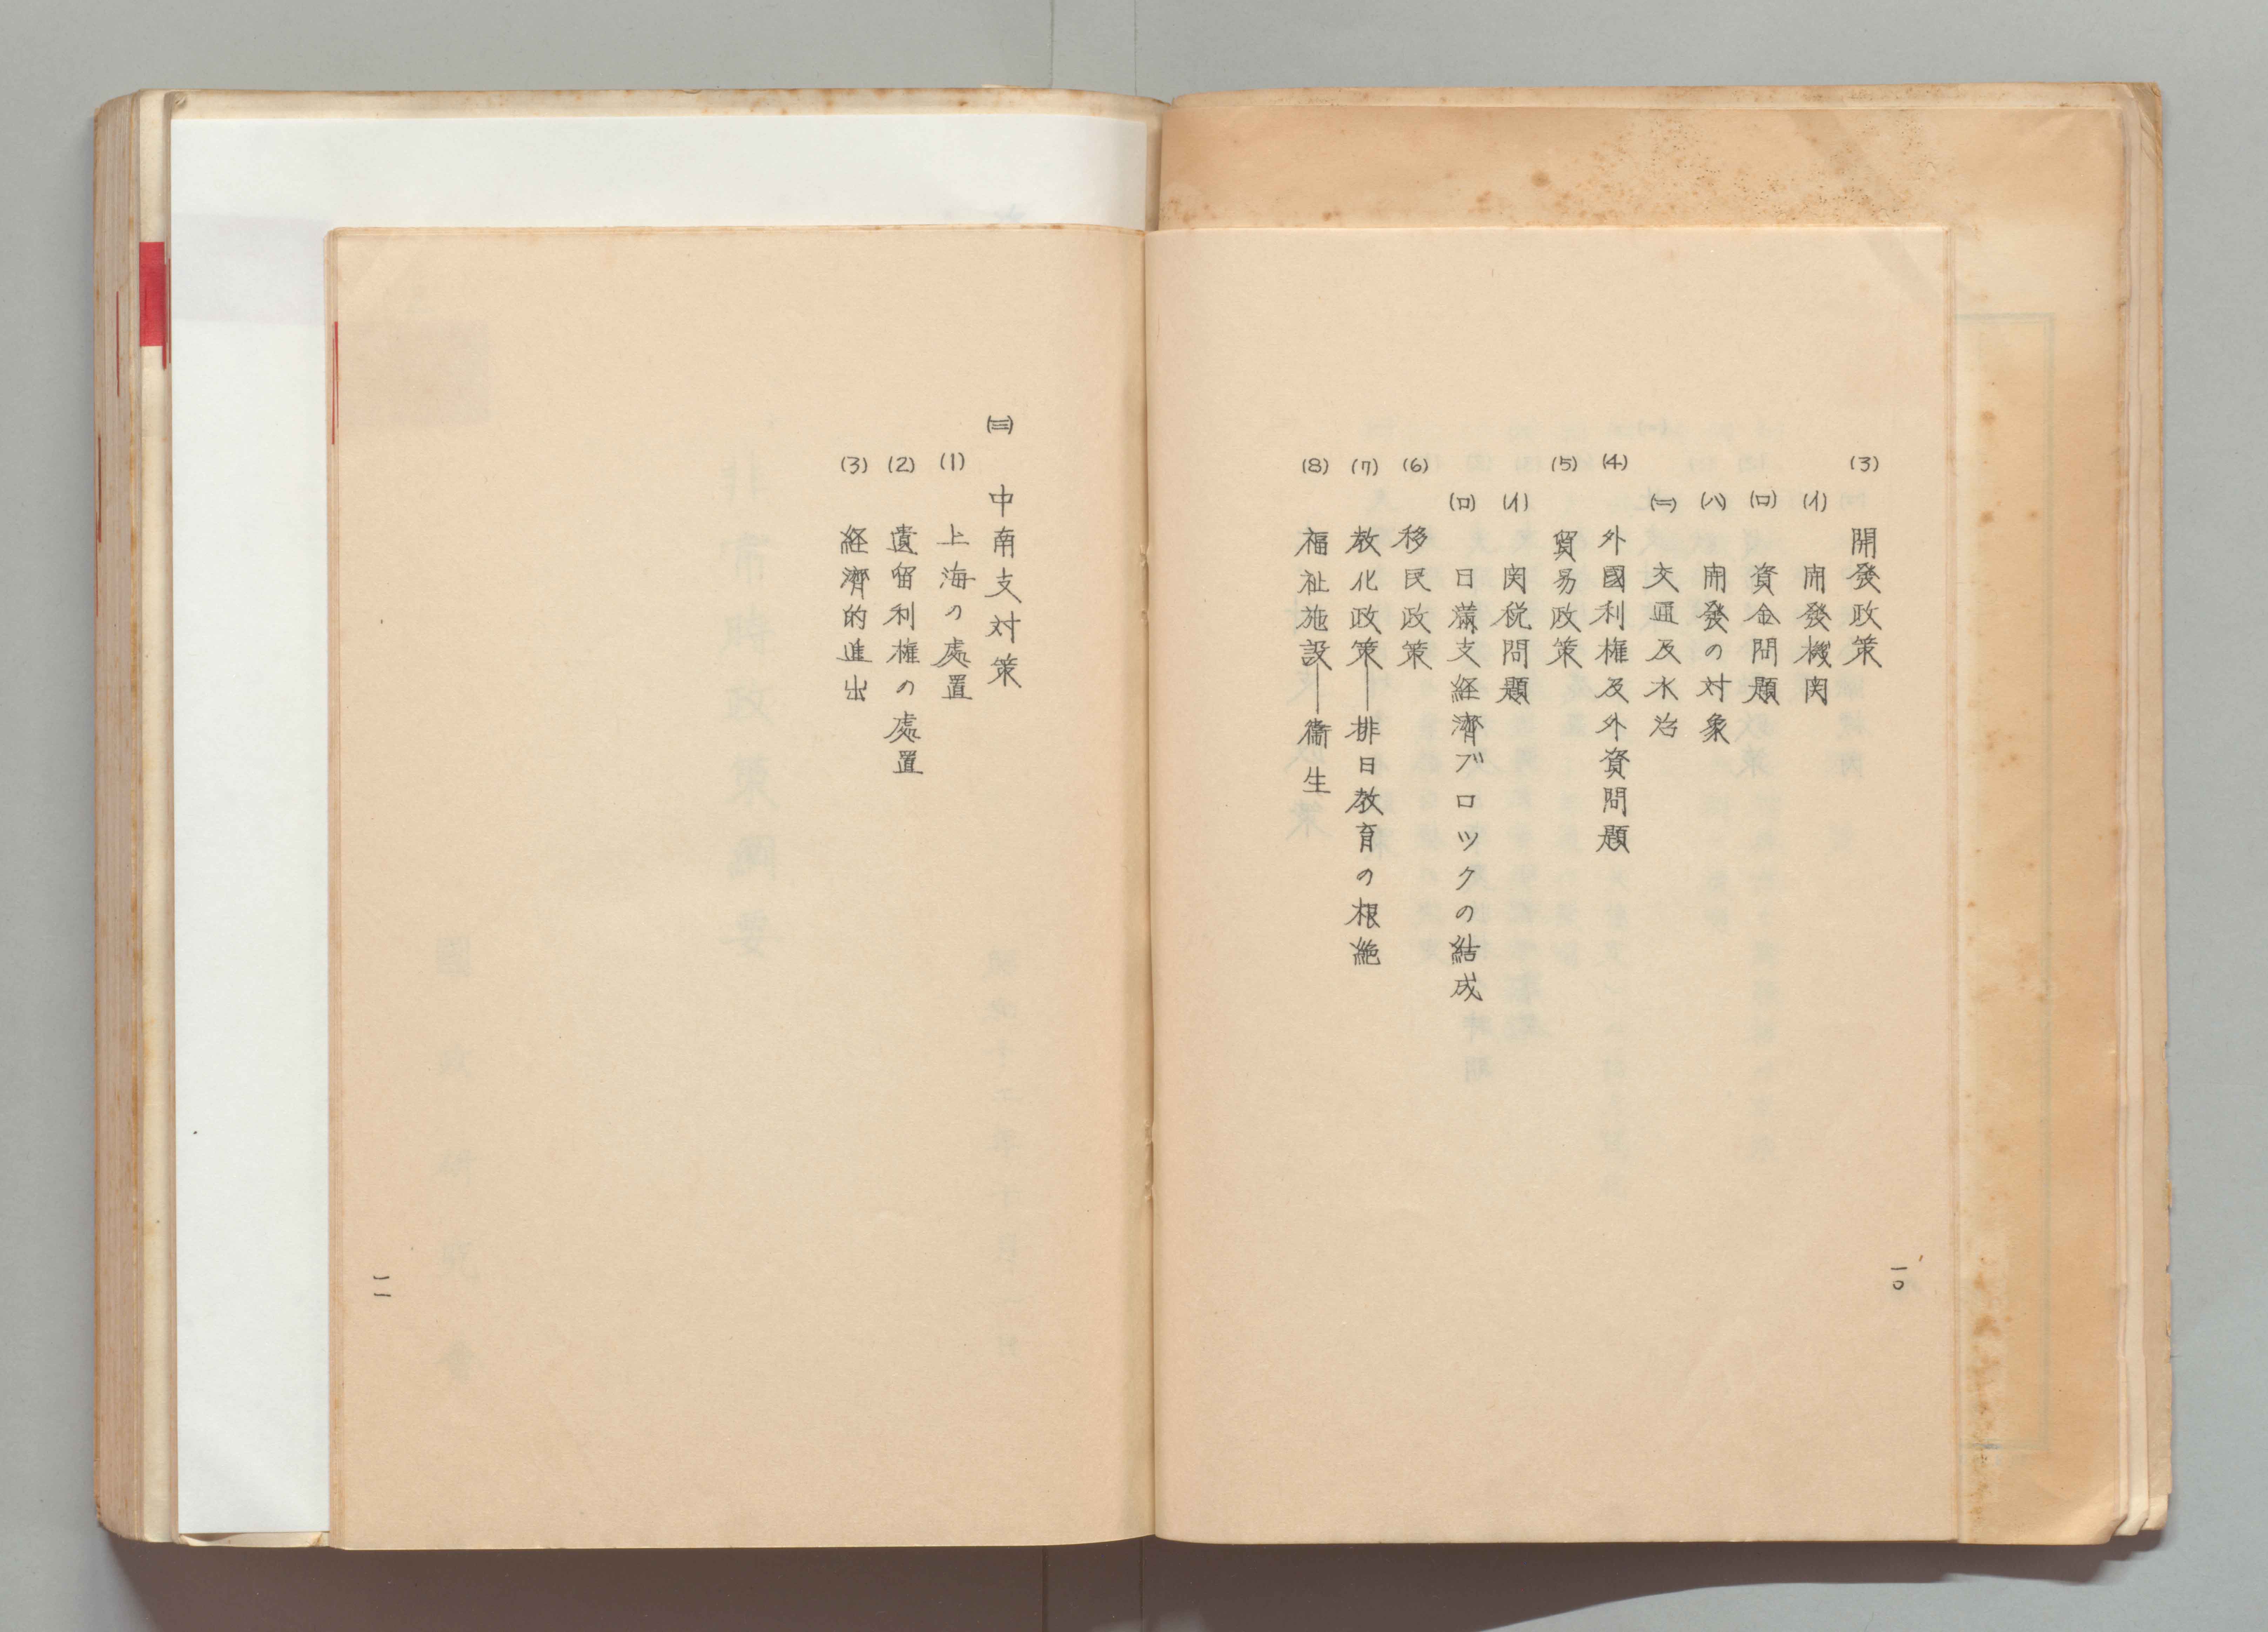 (3) 開發政策
(イ) 開發機関
(ロ) 資金問題
(ハ) 開發の対象
(ニ) 交通及水治
(4) 外國利権及外資問題
(5) 貿易政策
(イ) 関税問題
(ロ) 日滿支経濟ブロツクの結成
(6) 移民政策
(7) 教化政策―排日教育の根絶
(8) 福祉施設―衞生
一〇
(三) 中南支対策
(1) 上海の處置
(2) 遺留利権の處置
(3) 経濟的進出
一一